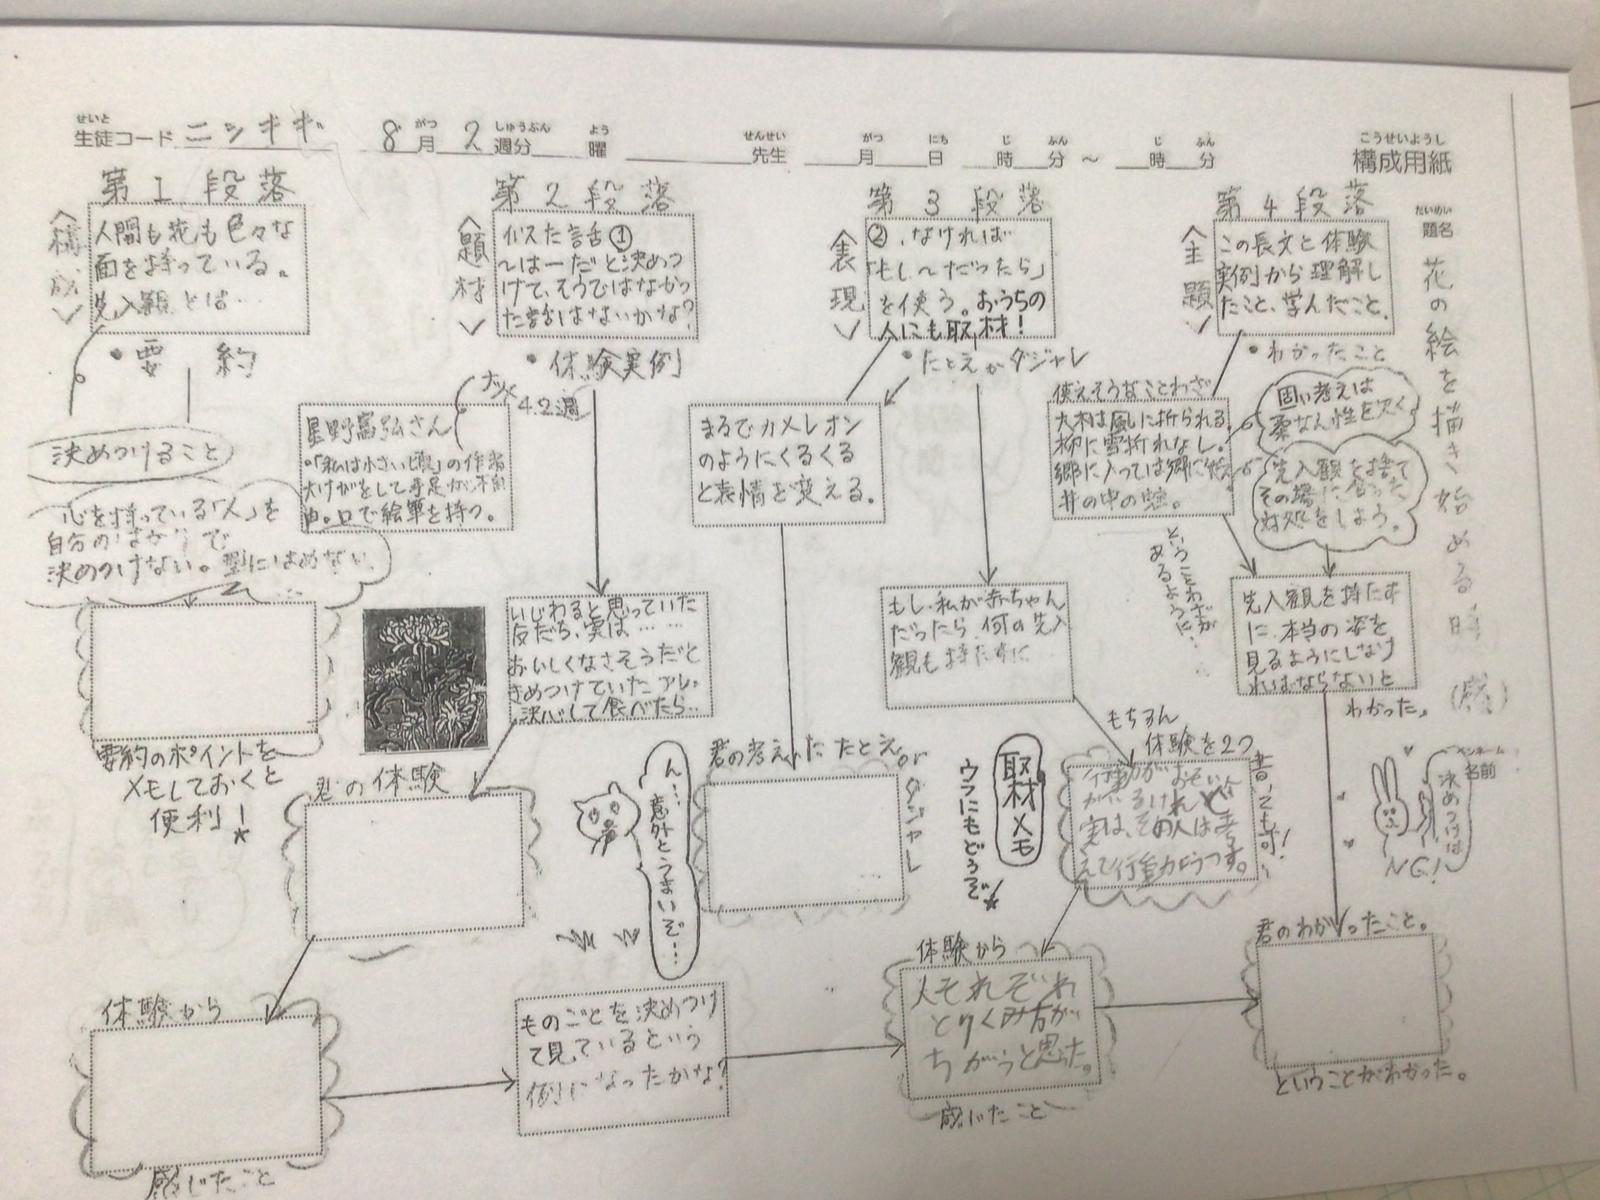 せいと
生徒コード ニシキギ 8月 2週分 曜 先生 月 日 時 分 ～ 時 分
がつ しゅうぶん よう せんせい がつ にち じ ふん じ ふん
こうせいようし
構成用紙
だいめい
題名
花の絵を描き始める時(感)
第1段落
〈構成〉
人間も花も色々な
面を持っている。
先入観とは…
・要約
決めつけること
心を持っている「人」を
自分の
決めつけない。型にはめない。
要約のポイントを
メモしておくと
便利！
第2段落
〈題材〉
似た話①
～は－だと決めつ
けて、そうではなかっ
た話はないかな？
・体験実例
4.2週
星野富弘さん
。「私は小さい頃」の作者
大けがをして手足が不自
由。口で絵筆を持つ。
いじわると思っていた
友だち、実は……
おいしくなさそうだと
きめつけていたアレ。
決心して食べたら…
君の体験
ん…意外とうまいぞ…
体験から
感じたこと
ものごとを決めつけ
て見ているという
例になったかな？
第3段落
〈表現〉
②、なければ
「もし～だったら」
を使う。おうちの
人にも取材！
・たとえかダジャレ
まるでカメレオン
のようにくるくる
と表情を変える。
もし、私が赤ちゃん
だったら、何の先入
観も持たずに
君の考えたたとえorダジャレ
取材メモ
ウラにもどうぞ
もちろん
体験を2つ
書いても可！
行動がおそい人
がいるけれど
実は、その人は考
えて行動にうつす。
体験から
人それぞれ
とりくみ方が
ちがうと思った。
感じたこと
第4段落
〈主題〉
この長文と体験
実例から理解し
たこと、学んだこと。
・わかったこと
使えそうなことわざ
大木は風に折られる
柳に雪折れなし。
郷に入っては郷に従え
井の中の蛙。
ということわざが
あるように、
固い考えは
柔なん性を欠く
先入観を捨て
その場に合った
対処をしよう。
先入観を持たず
に、本当の姿を
見るようにしなけ
ればならないと
わかった。
ペンネーム
名前
決めつけは
NG！
君のわかったこと。
ということがわかった。